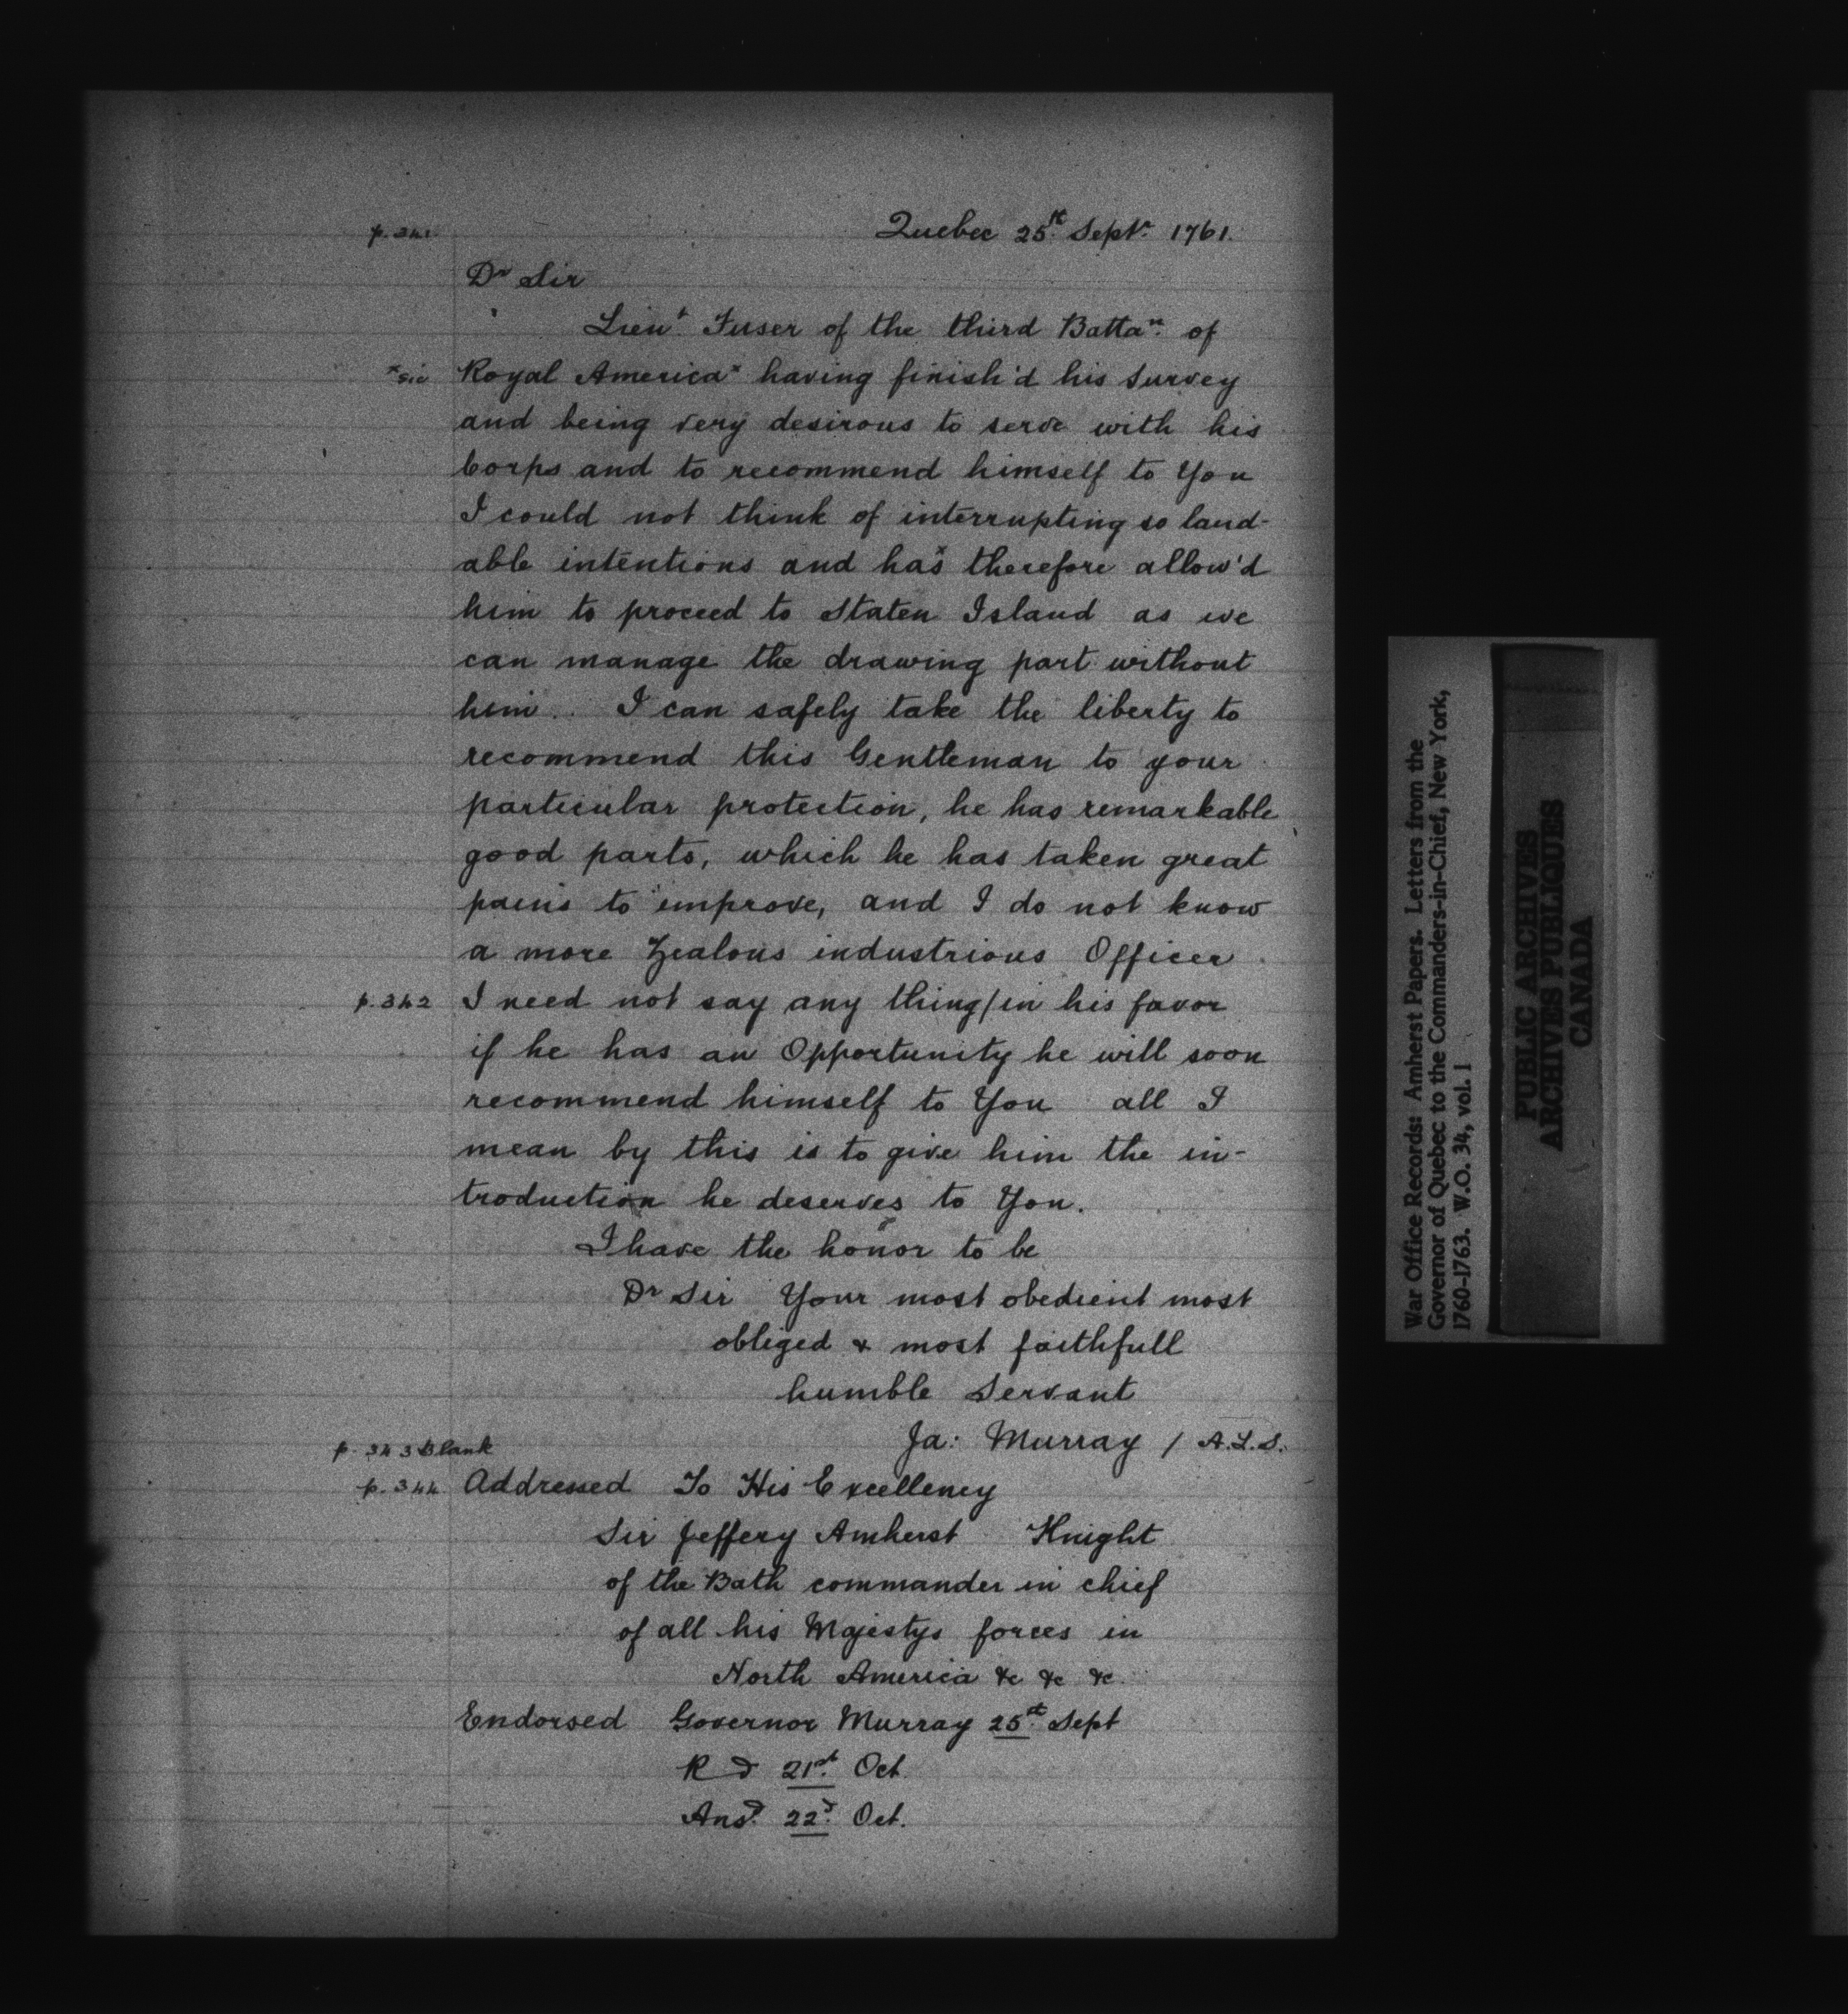 p. 341 Quebec 25th. Septr. 1761.
Dr Sir
Lieut. Fuser of the third Battan. of
*sic Royal America* having finish'd his Survey
and being very desirous to serve with his
Corps and to recommend himself to You
I could not think of interrupting so laud-
able intentions and hasx therefore allow'd
him to proceed to Staten Island as we
can manage the drawing part without
him. I can safely take the liberty to
recommend this Gentleman to your
particular protection, he has remarkable
good parts, which he has taken great
pains to improve, and I do not know
a more Zealous industrious Officer
p. 342 I need not say any thing/in his favor
if he has an Opportunity he will soon
recommend himself to You all I
mean by this is to give him the in-
troduction he deserves to You.
I have the honor to be
Dr Sir Your most obedient most
obliged & most faithfull
humble Servant
Ja: Murray / A.L.S.
p. 343 Blank
p. 344 Addressed To His Excellency
Sir Jeffery Amherst Knight
of the Bath commander in chief
of all his Majestys forces in
North America &c &c &c
Endorsed Governor Murray 25th. Sept
Rd 21st. Oct.
Ansd. 22d. Oct.
War Office Records: Amherst Papers. Letters from the
Governor of Quebec to the Commanders-in-Chief, New York,
1760-1763. W.O. 34, vol. 1
PUBLIC ARCHIVES
ARCHIVES PUBLIQUES
CANADA